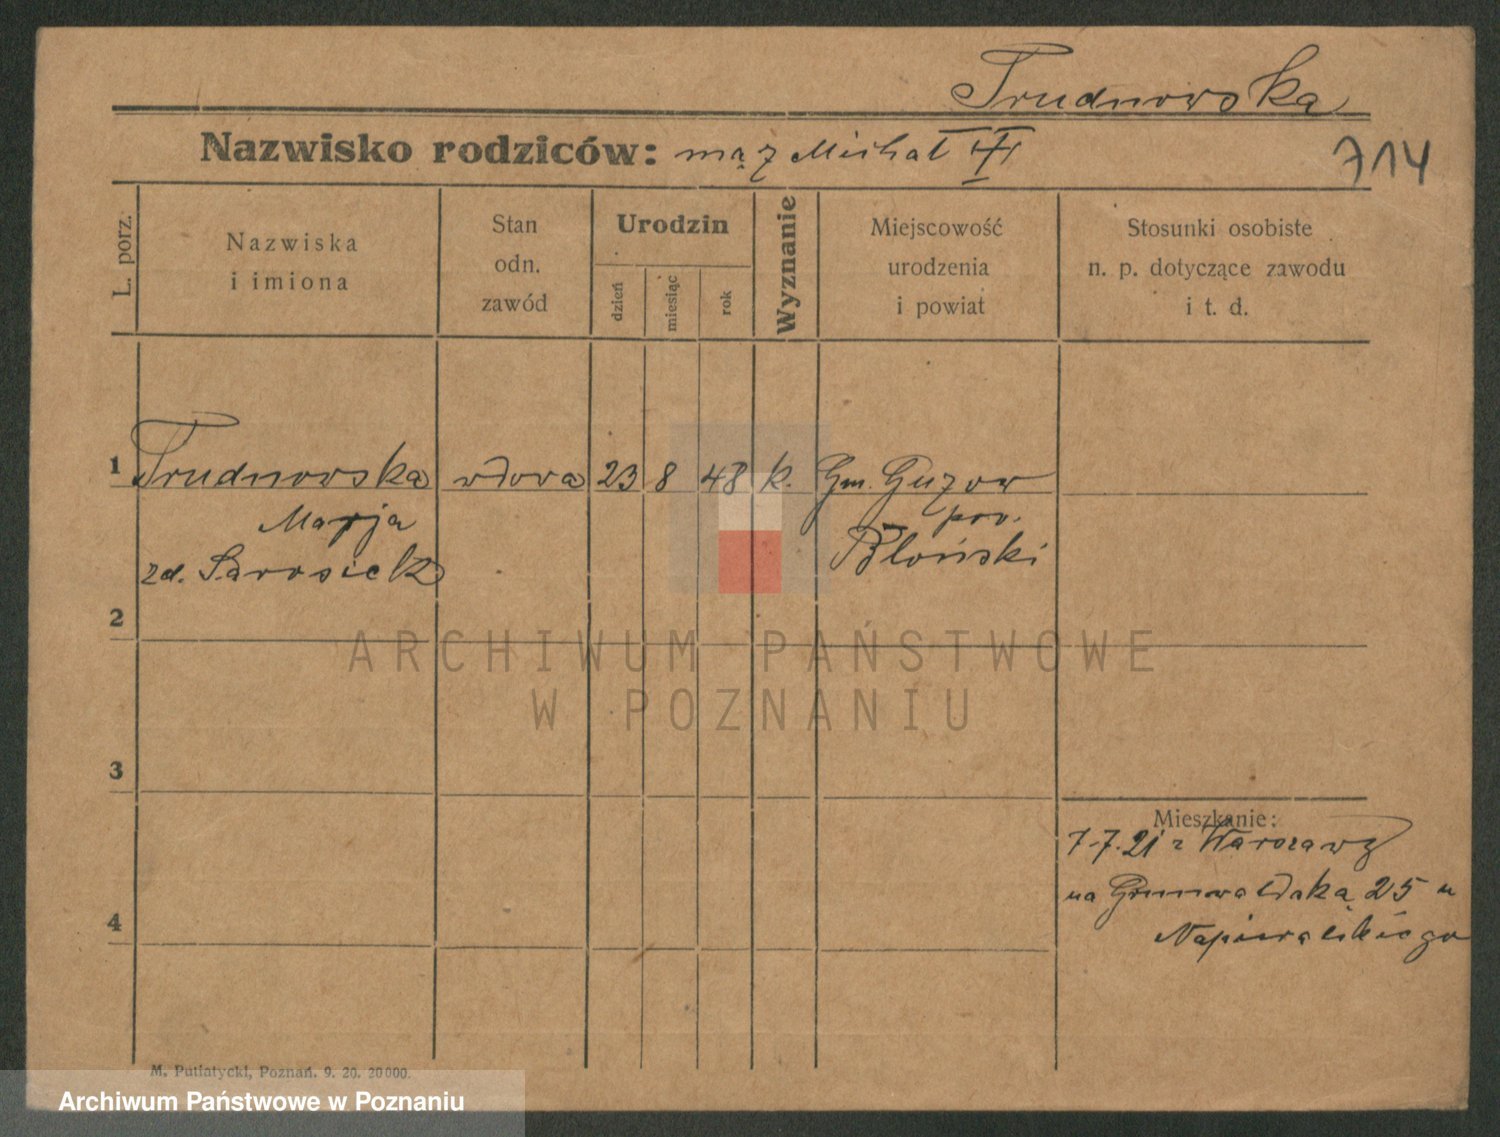 Trudnowska
Nazwisko rodziców: mąż Michał
714
L. porz.
Nazwiska
i imiona
Stan
odn.
zawód
Urodzin
dzień
miesiąc
rok
Wyznanie
Miejscowość
urodzenia
i powiat
Stosunki osobiste
n. p. dotyczące zawodu
i t. d.
1
Trudnowska
wdowa
23
8
48
k.
Gm. Guzow
Marja
pow.
zd. Sarosiek
Błoński
2
ARCHIWUM PAŃSTWOWE
W POZNANIU
3
Mieszkanie:
7.7.21 z Warszawy
na Grunwaldzką 25 u
4
Napieralskiego
M. Putiatycki, Poznań. 9. 20. 20000.
Archiwum Państwowe w Poznaniu